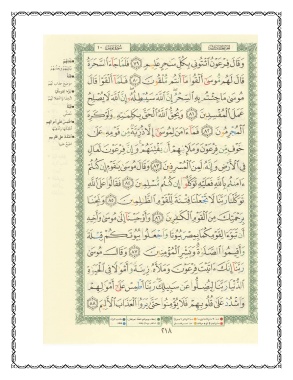 وَقَالَ فِرْعَوْنُ ائْتُونِي بِكُلِّ سَاحِرٍ عَلِيمٍ ﴿٧٩﴾ فَلَمَّا جَاءَ السَّحَرَةُ
قَالَ لَهُمْ مُوسَى أَلْقُوا مَا أَنْتُمْ مُلْقُونَ ﴿٨٠﴾ فَلَمَّا أَلْقَوْا قَالَ
مُوسَى مَا جِئْتُمْ بِهِ السِّحْرُ إِنَّ اللَّهَ سَيُبْطِلُهُ إِنَّ اللَّهَ لَا يُصْلِحُ
عَمَلَ الْمُفْسِدِينَ ﴿٨١﴾ وَيُحِقُّ اللَّهُ الْحَقَّ بِكَلِمَاتِهِ وَلَوْ كَرِهَ
الْمُجْرِمُونَ ﴿٨٢﴾ فَمَا آمَنَ لِمُوسَى إِلَّا ذُرِّيَّةٌ مِنْ قَوْمِهِ عَلَى
خَوْفٍ مِنْ فِرْعَوْنَ وَمَلَئِهِمْ أَنْ يَفْتِنَهُمْ وَإِنَّ فِرْعَوْنَ لَعَالٍ
فِي الْأَرْضِ وَإِنَّهُ لَمِنَ الْمُسْرِفِينَ ﴿٨٣﴾ وَقَالَ مُوسَى يَا قَوْمِ إِنْ كُنْتُمْ
آمَنْتُمْ بِاللَّهِ فَعَلَيْهِ تَوَكَّلُوا إِنْ كُنْتُمْ مُسْلِمِينَ ﴿٨٤﴾ فَقَالُوا عَلَى اللَّهِ
تَوَكَّلْنَا رَبَّنَا لَا تَجْعَلْنَا فِتْنَةً لِلْقَوْمِ الظَّالِمِينَ ﴿٨٥﴾ وَنَجِّنَا
بِرَحْمَتِكَ مِنَ الْقَوْمِ الْكَافِرِينَ ﴿٨٦﴾ وَأَوْحَيْنَا إِلَى مُوسَى وَأَخِيهِ
أَنْ تَبَوَّآ لِقَوْمِكُمَا بِمِصْرَ بُيُوتًا وَاجْعَلُوا بُيُوتَكُمْ قِبْلَةً
وَأَقِيمُوا الصَّلَاةَ وَبَشِّرِ الْمُؤْمِنِينَ ﴿٨٧﴾ وَقَالَ مُوسَى
رَبَّنَا إِنَّكَ آتَيْتَ فِرْعَوْنَ وَمَلَأَهُ زِينَةً وَأَمْوَالًا فِي الْحَيَاةِ
الدُّنْيَا رَبَّنَا لِيُضِلُّوا عَنْ سَبِيلِكَ رَبَّنَا اطْمِسْ عَلَى أَمْوَالِهِمْ
وَاشْدُدْ عَلَى قُلُوبِهِمْ فَلَا يُؤْمِنُوا حَتَّى يَرَوُا الْعَذَابَ الْأَلِيمَ ﴿٨٨﴾
٢١٨